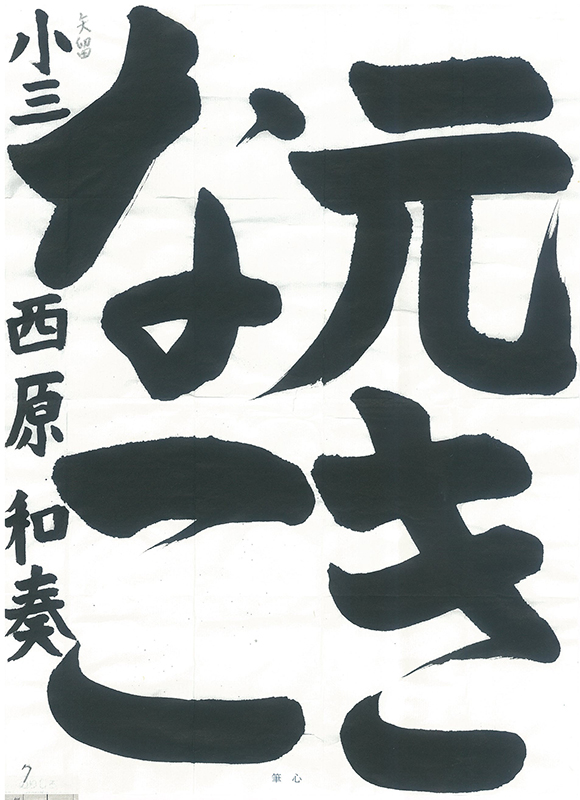 元き
なこ
小三 西原 和奏
矢留
心筆
7